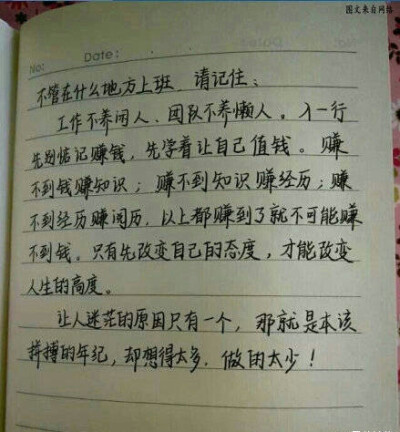 图文来自网络
No:
Date:
不管在什么地方上班 请记住：
工作不养闲人、团队不养懒人。入一行
先别惦记赚钱，先学着让自己值钱。赚
不到钱赚知识；赚不到知识赚经历；赚
不到经历赚阅历，以上都赚到了就不可能赚
不到钱。只有先改变自己的态度，才能改变
人生的高度。
让人迷茫的原因只有一个，那就是本该
拼搏的年纪，却想得太多，做的太少！